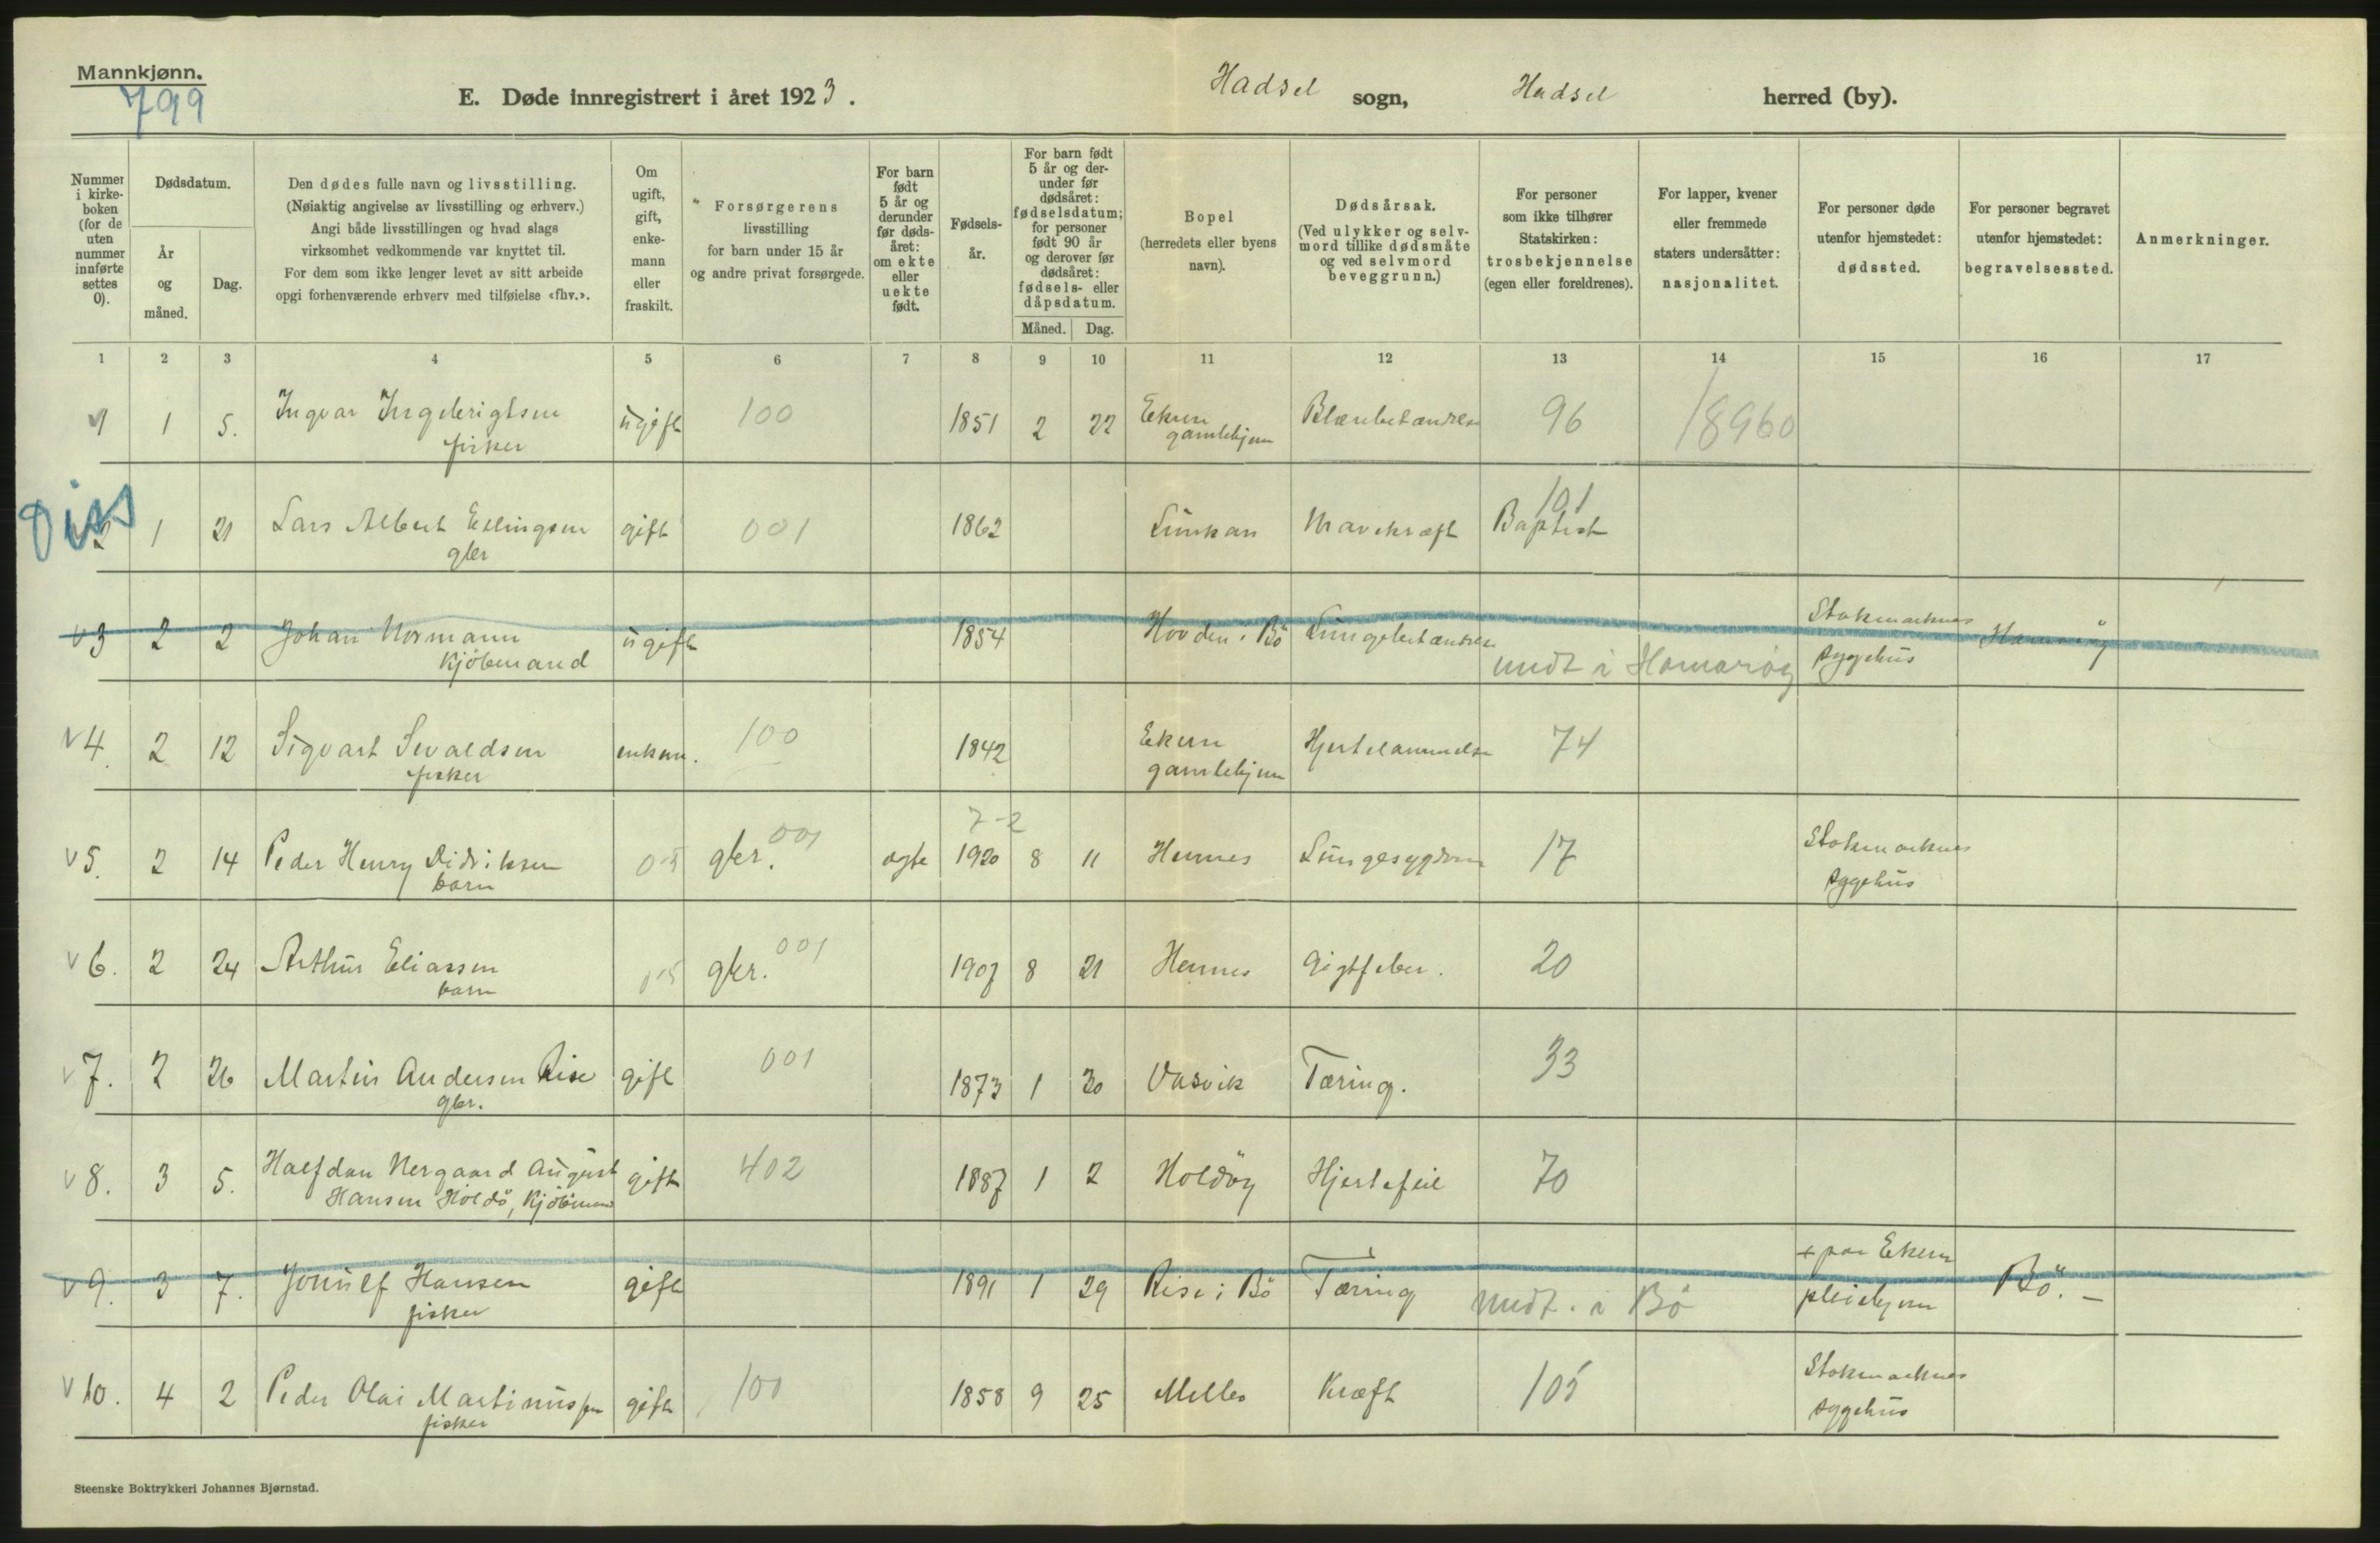 Mannkjønn.
799
E. Døde innregistrert i året 1923.
Hadsel sogn, Hadsel herred (by).
Nummer i kirkeboken (for de uten nummer innførte settes 0).
Dødsdatum.
År og måned.
Dag.
Den dødes fulle navn og livsstilling.
(Nøiaktig angivelse av livsstilling og erhverv.)
Angi både livsstillingen og hvad slags
virksomhet vedkommende var knyttet til.
For dem som ikke lenger levet av sitt arbeide
opgi forhenværende erhverv med tilføielse «fhv.».
Om ugift, gift, enkemann eller fraskilt.
Forsørgerens
livsstilling
for barn under 15 år
og andre privat forsørgede.
For barn født 5 år og derunder før dødsåret: om ekte eller uekte født.
Fødselsår.
For barn født 5 år og derunder før dødsåret: fødselsdatum; for personer født 90 år og derover før dødsåret: fødsels- eller dåpsdatum.
Måned. Dag.
Bopel
(herredets eller byens
navn).
Dødsårsak.
(Ved ulykker og selvmord tillike dødsmåte og ved selvmord beveggrunn.)
For personer
som ikke tilhører
Statskirken:
trosbekjennelse
(egen eller foreldrenes).
For lapper, kvener
eller fremmede
staters undersåtter:
nasjonalitet.
For personer døde
utenfor hjemstedet:
dødssted.
For personer begravet
utenfor hjemstedet:
begravelsessted.
Anmerkninger.
1 2 3 4 5 6 7 8 9 10 11 12 13 14 15 16 17
1 1 5. Ingvar Ingebrigtsen ugift 100 1851 2 22 Ekren Blærebetændelse 96 18960
fisker gamlehjem
Diss
2 1 21 Lars Albert Ellingsen gift 001 1862 Mavekræft Baptist 101
gbr
v 3 2 2 Johan Normann ugift 1854 Hovden i Bö Lungebetændelse Stokmarknes Hamaröy
Kjöbmand medt i Hamaröy sygehus
v 4. 2 12 Sigvart Sivaldsen enkem. 100 1842 Ekren Hjertelammelse 74
fisker gamlehjem
7-2
v 5. 2 14 Peder Henry Didriksen 05 gbr. 001 ægte 1920 8 11 Hennes Lungesygdom 17 Stokmarknes
barn sygehus
v 6. 2 24 Arthur Eliassen 05 gbr. 001 1907 8 21 Hennes Gigtfeber. 20
barn
v 7. 2 26 Martin Andersen Rise gift 001 1873 1 30 Vasvik Tæring. 33
gbr.
v 8. 3 5. Halfdan Nergaard August gift 402 1887 1 2 Holdöy Hjertefeil 70
Hansen Holdö, Kjöbmand
v 9. 3 7. Hansen gift 1891 1 29 Rise i Bö Tæring + paa Ekren Bö. –
fisker medt. i Bö pleiehjem
v 10. 4 2 Peder Olai Martinussen gift 100 1858 9 25 Melbo Kræft 105 Stokmarknes
fisker sygehus
Steenske Boktrykkeri Johannes Bjørnstad.